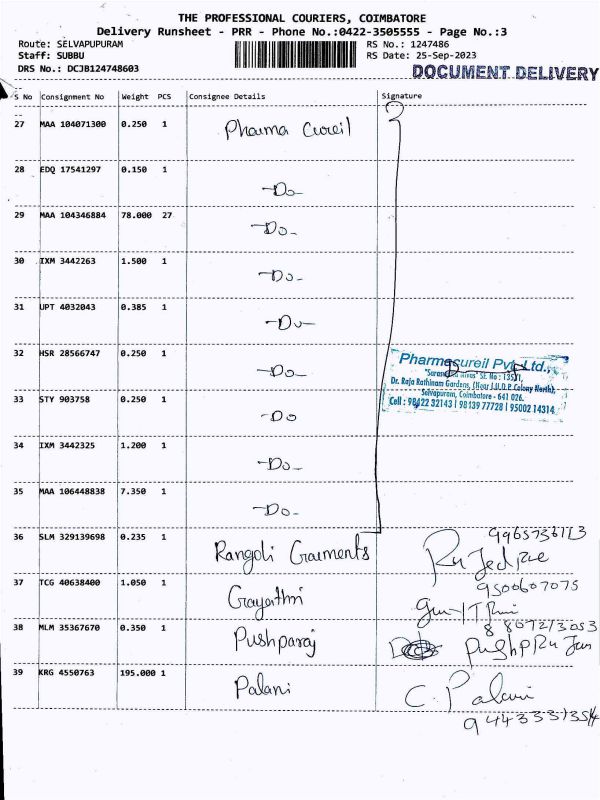 THE PROFESSIONAL COURIERS, COIMBATORE
Delivery Runsheet - PRR - Phone No.:0422-3505555 - Page No.:3
Route: SELVAPUPURAM RS No.: 1247486
Staff: SUBBU RS Date: 25-Sep-2023
DRS No.: DCJB124748603
DOCUMENT DELIVERY
S No Consignment No Weight PCS Consignee Details Signature
27 MAA 104071300 0.250 1 Pharma Cureil
28 EDQ 17541297 0.150 1 -Do-
29 MAA 104346884 78.000 27 -Do-
30 IXM 3442263 1.500 1 -Do-
31 UPT 4032043 0.385 1 -Do-
32 HSR 28566747 0.250 1 -Do-
Pharmacureil Pvt. Ltd.,
Dr. Raja Rathinam Gardens, (Near J.U.O.P. Colony North),
Selvapuram, Coimbatore - 641 026.
Cell : 98422 32143 | 98139 77728 | 95002 14314
33 STY 903758 0.250 1 -Do
34 IXM 3442325 1.200 1 -Do-
35 MAA 106448838 7.350 1 -Do-
36 SLM 329139698 0.235 1 Rangoli Garments
37 TCG 40638400 1.050 1 Gayathri 9500607075
38 MLM 35367670 0.350 1 Pushparaj
39 KRG 4550763 195.000 1 Palani C. Palani